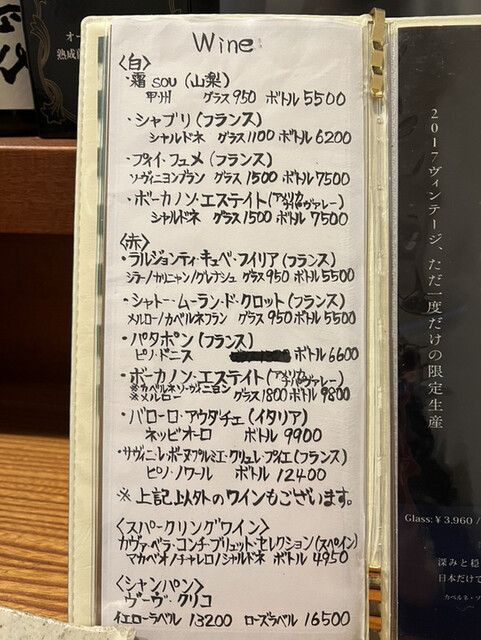 Wine
〈白〉
・霜 sou (山梨)
甲州 グラス 950 ボトル 5500
・シャブリ (フランス)
シャルドネ グラス 1100 ボトル 6200
・プイィ・フュメ (フランス)
ソーヴィニヨンブラン グラス 1500 ボトル 7500
・ボーカノン・エステイト (アメリカ ナパヴァレー)
シャルドネ グラス 1500 ボトル 7500
〈赤〉
・ラルジョンティ・キュベ・フイリア (フランス)
シラー/カリニャン/グレナシュ グラス 950 ボトル 5500
・シャトー・ムーラン・ド・クロット (フランス)
メルロー/カベルネフラン グラス 950 ボトル 5500
・パタポン (フランス)
ピノ・ドニス ボトル 6600
・ボーカノン・エステイト (アメリカ ナパヴァレー)
※カベルネソーヴィニヨン
※メルロー グラス 1800 ボトル 9800
・バローロ・アウダチェ (イタリア)
ネッビオーロ ボトル 9900
・サヴィニ・レ・ボーヌプルミエ・クリュ・レ・プイエ (フランス)
ピノ・ノワール ボトル 12400
※ 上記以外のワインもございます。
〈スパークリングワイン〉
カヴァ・ベラ・コンチ・ブリュット・セレクション (スペイン)
マカベオ/チャレロ/シャルドネ ボトル 4950
〈シャンパン〉
ヴーヴ・クリコ
イエローラベル 13200 ローズラベル 16500
2017ヴィンテージ、ただ一度だけの限定生産
Glass:¥3,960/
深みと穏
日本だけで
カベルネ・ソ
オー
熟成